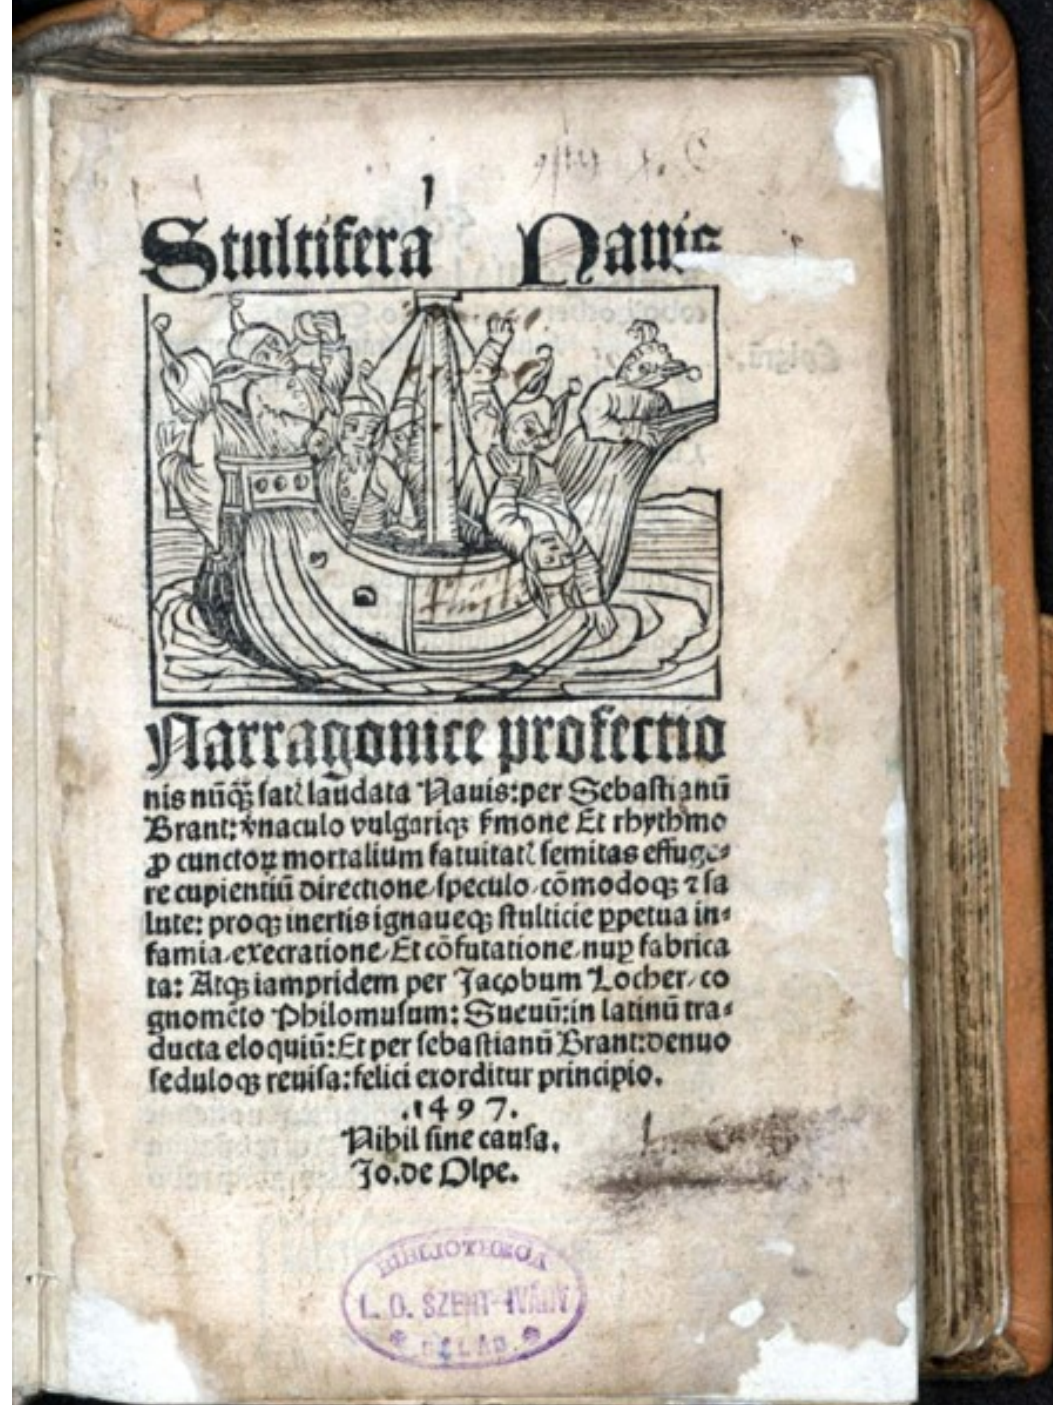 Stultifera Nauis
Narragonice profectio
nis nūq̄ꝫ satꝭ laudata Nauis: per Sebastianū
Brant: v̄naculo vulgariqꝫ ẜmone Et rhythmo
ꝓ cunctoꝝ mortalium fatuitatꝭ semitas effuge⸗
re cupientiū directione / speculo / cōmodoqꝫ ⁊ sa
lute: proqꝫ inertis ignaueqꝫ stulticie ꝑpetua in⸗
famia / execratione / Et cōfutatione / nuꝑ fabrica
ta: Atqꝫ iampridem per Jacobum Locher / co
gnomēto Philomusum: Sueuū: in latinū tra⸗
ducta eloquiū: Et per sebastianū Brant: denuo
seduloqꝫ reuisa: felici exorditur principio.
.1497.
Nihil sine causa.
Jo. de Olpe.
BIBLIOTHECA
L. O. SZENT-IVÁNY